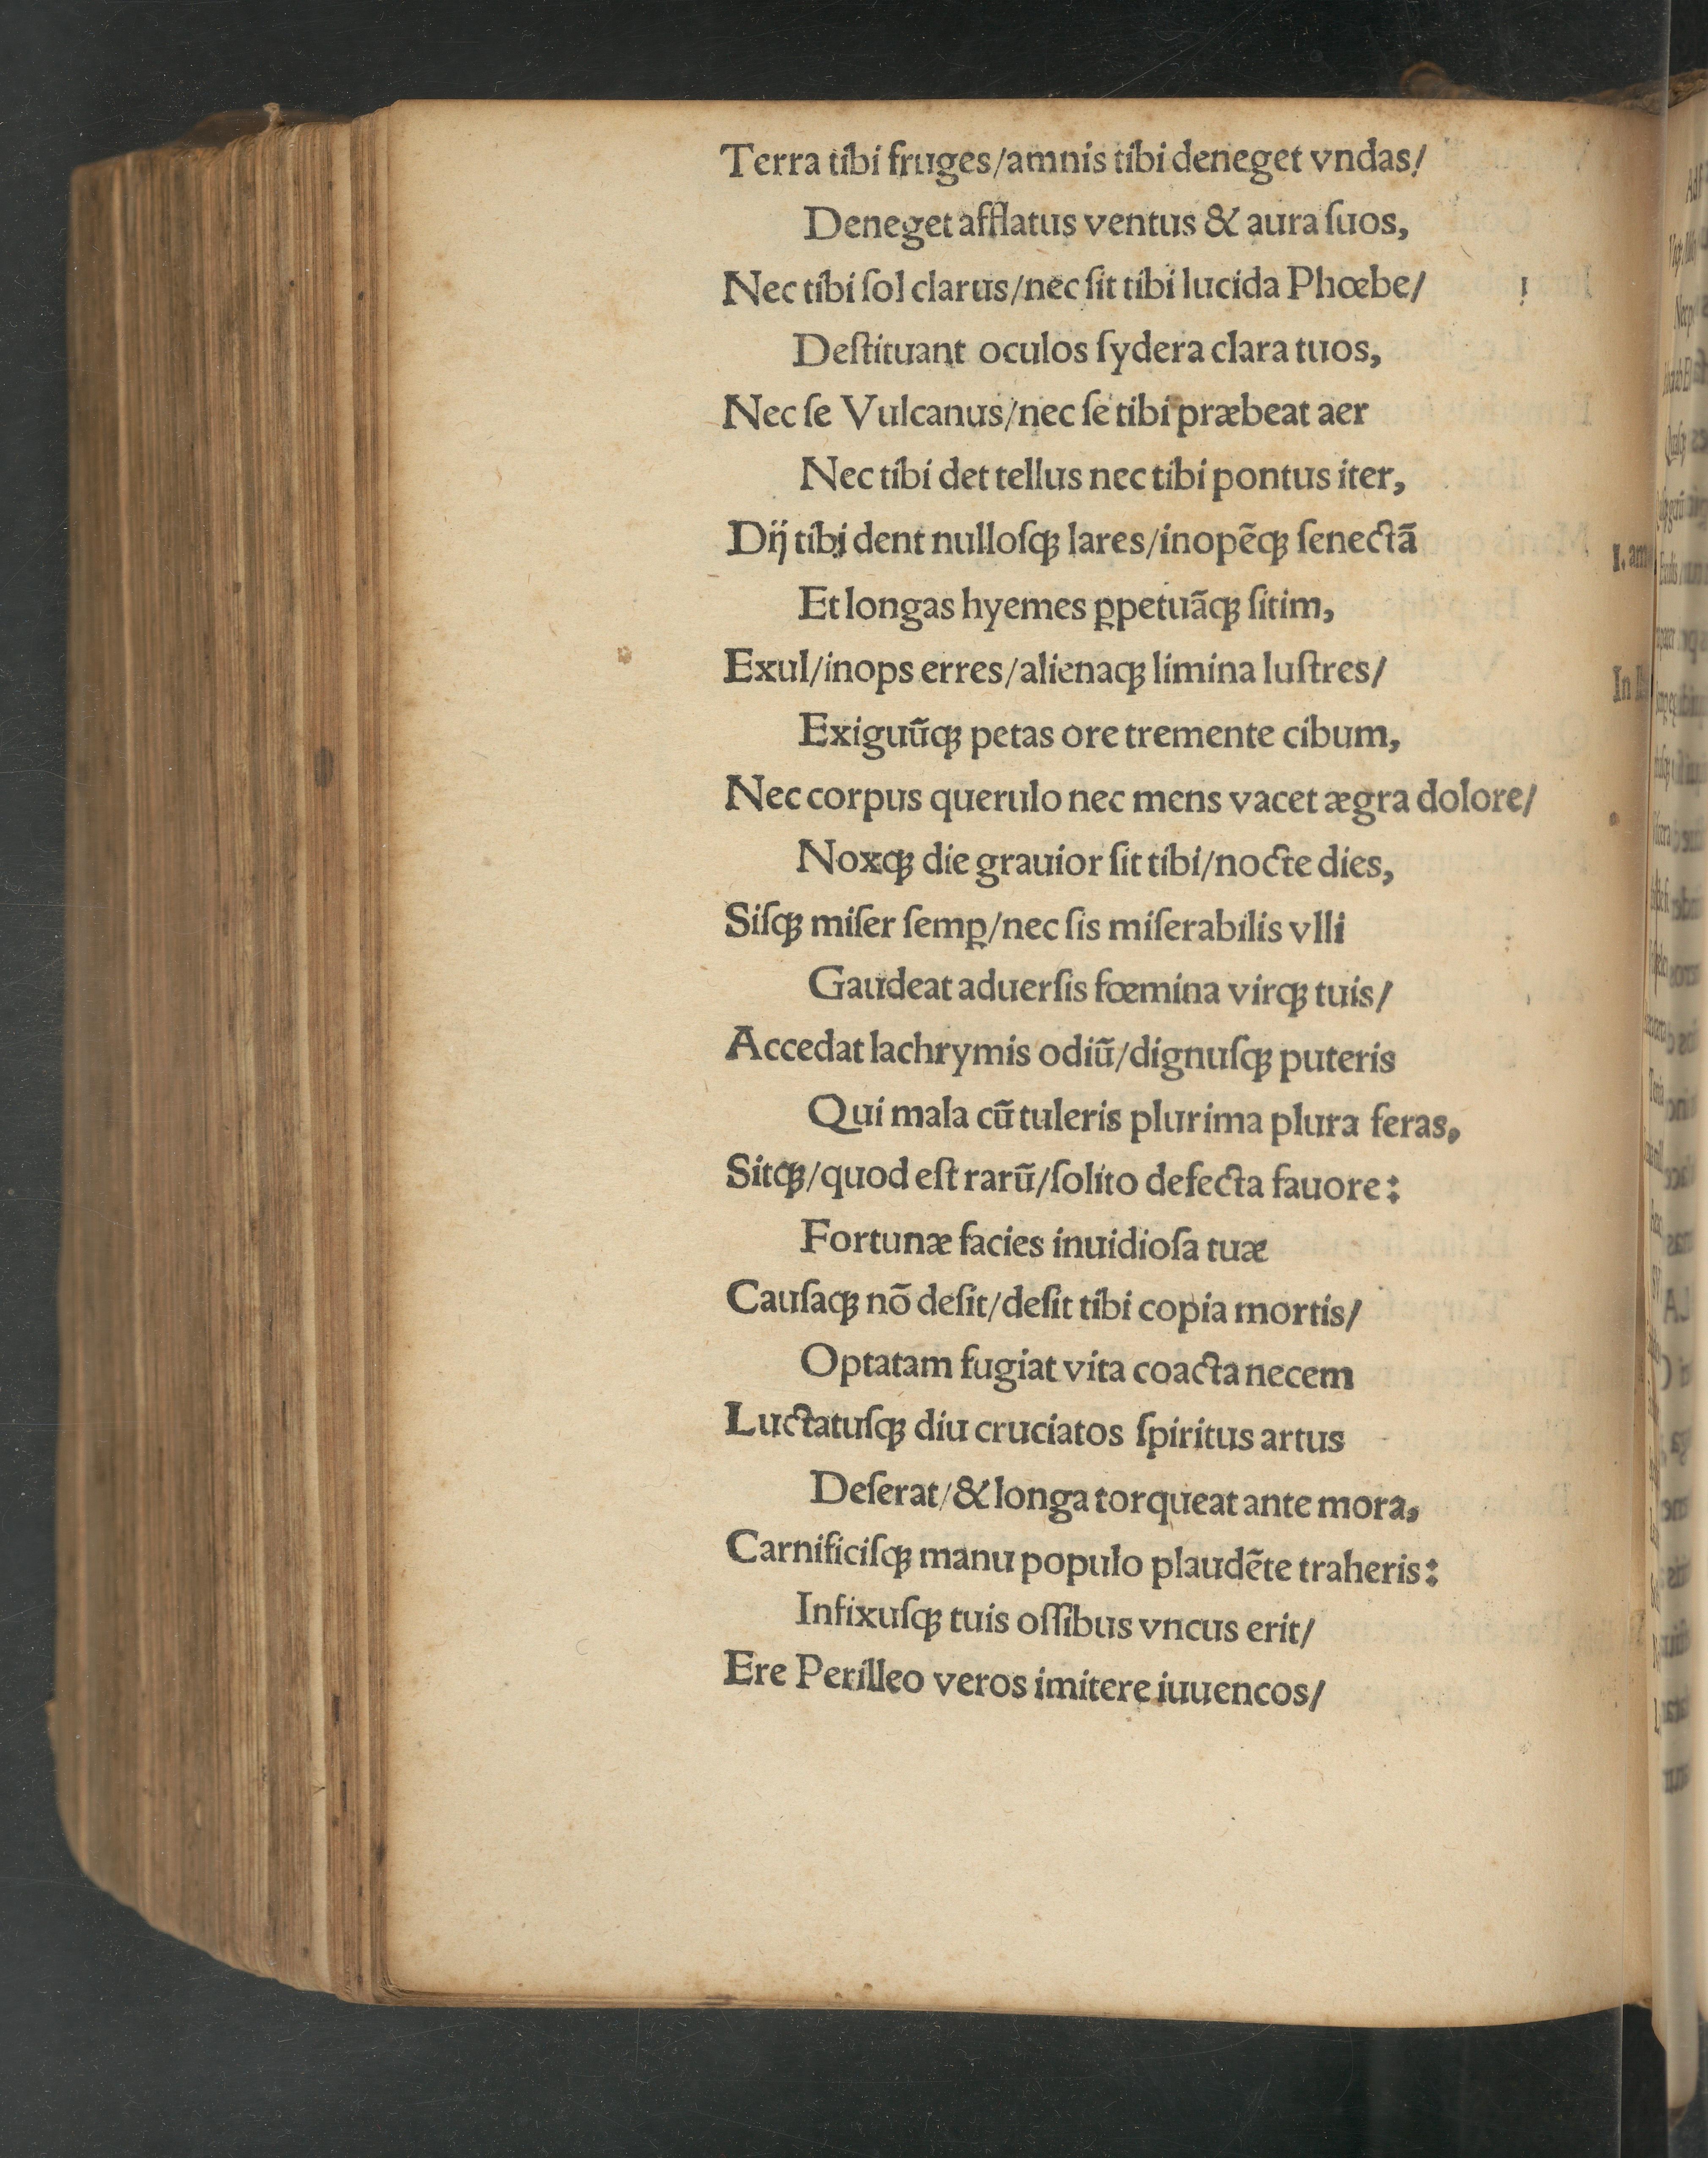 Terra tibi fruges/amnis tibi deneget vndas/
Deneget afflatus ventus & aura ſuos,
Nec tibi ſol clarus/nec ſit tibi lucida Phœbe/
Deſtituant oculos ſydera clara tuos,
Nec ſe Vulcanus/nec ſe tibi præbeat aer
Nec tibi det tellus nec tibi pontus iter,
Dij tibi dent nulloſqꝫ lares/inopẽqꝫ ſenectã
Et longas hyemes ꝑpetuãqꝫ ſitim,
Exul/inops erres/alienaqꝫ limina luſtres/
Exiguũqꝫ petas ore tremente cibum,
Nec corpus querulo nec mens vacet ægra dolore/
Noxqꝫ die grauior ſit tibi/nocte dies,
Siſqꝫ miſer ſemꝑ/nec ſis miſerabilis vlli
Gaudeat aduerſis fœmina virqꝫ tuis/
Accedat lachrymis odiũ/dignuſqꝫ puteris
Qui mala cũ tuleris plurima plura feras,
Sitqꝫ/quod eſt rarũ/ſolito defecta fauore:
Fortunæ facies inuidioſa tuæ
Cauſaqꝫ nõ deſit/deſit tibi copia mortis/
Optatam fugiat vita coacta necem
Luctatuſqꝫ diu cruciatos ſpiritus artus
Deſerat/& longa torqueat ante mora,
Carnificiſqꝫ manu populo plaudẽte traheris:
Infixuſqꝫ tuis oſſibus vncus erit/
Ere Perilleo veros imitere iuuencos/